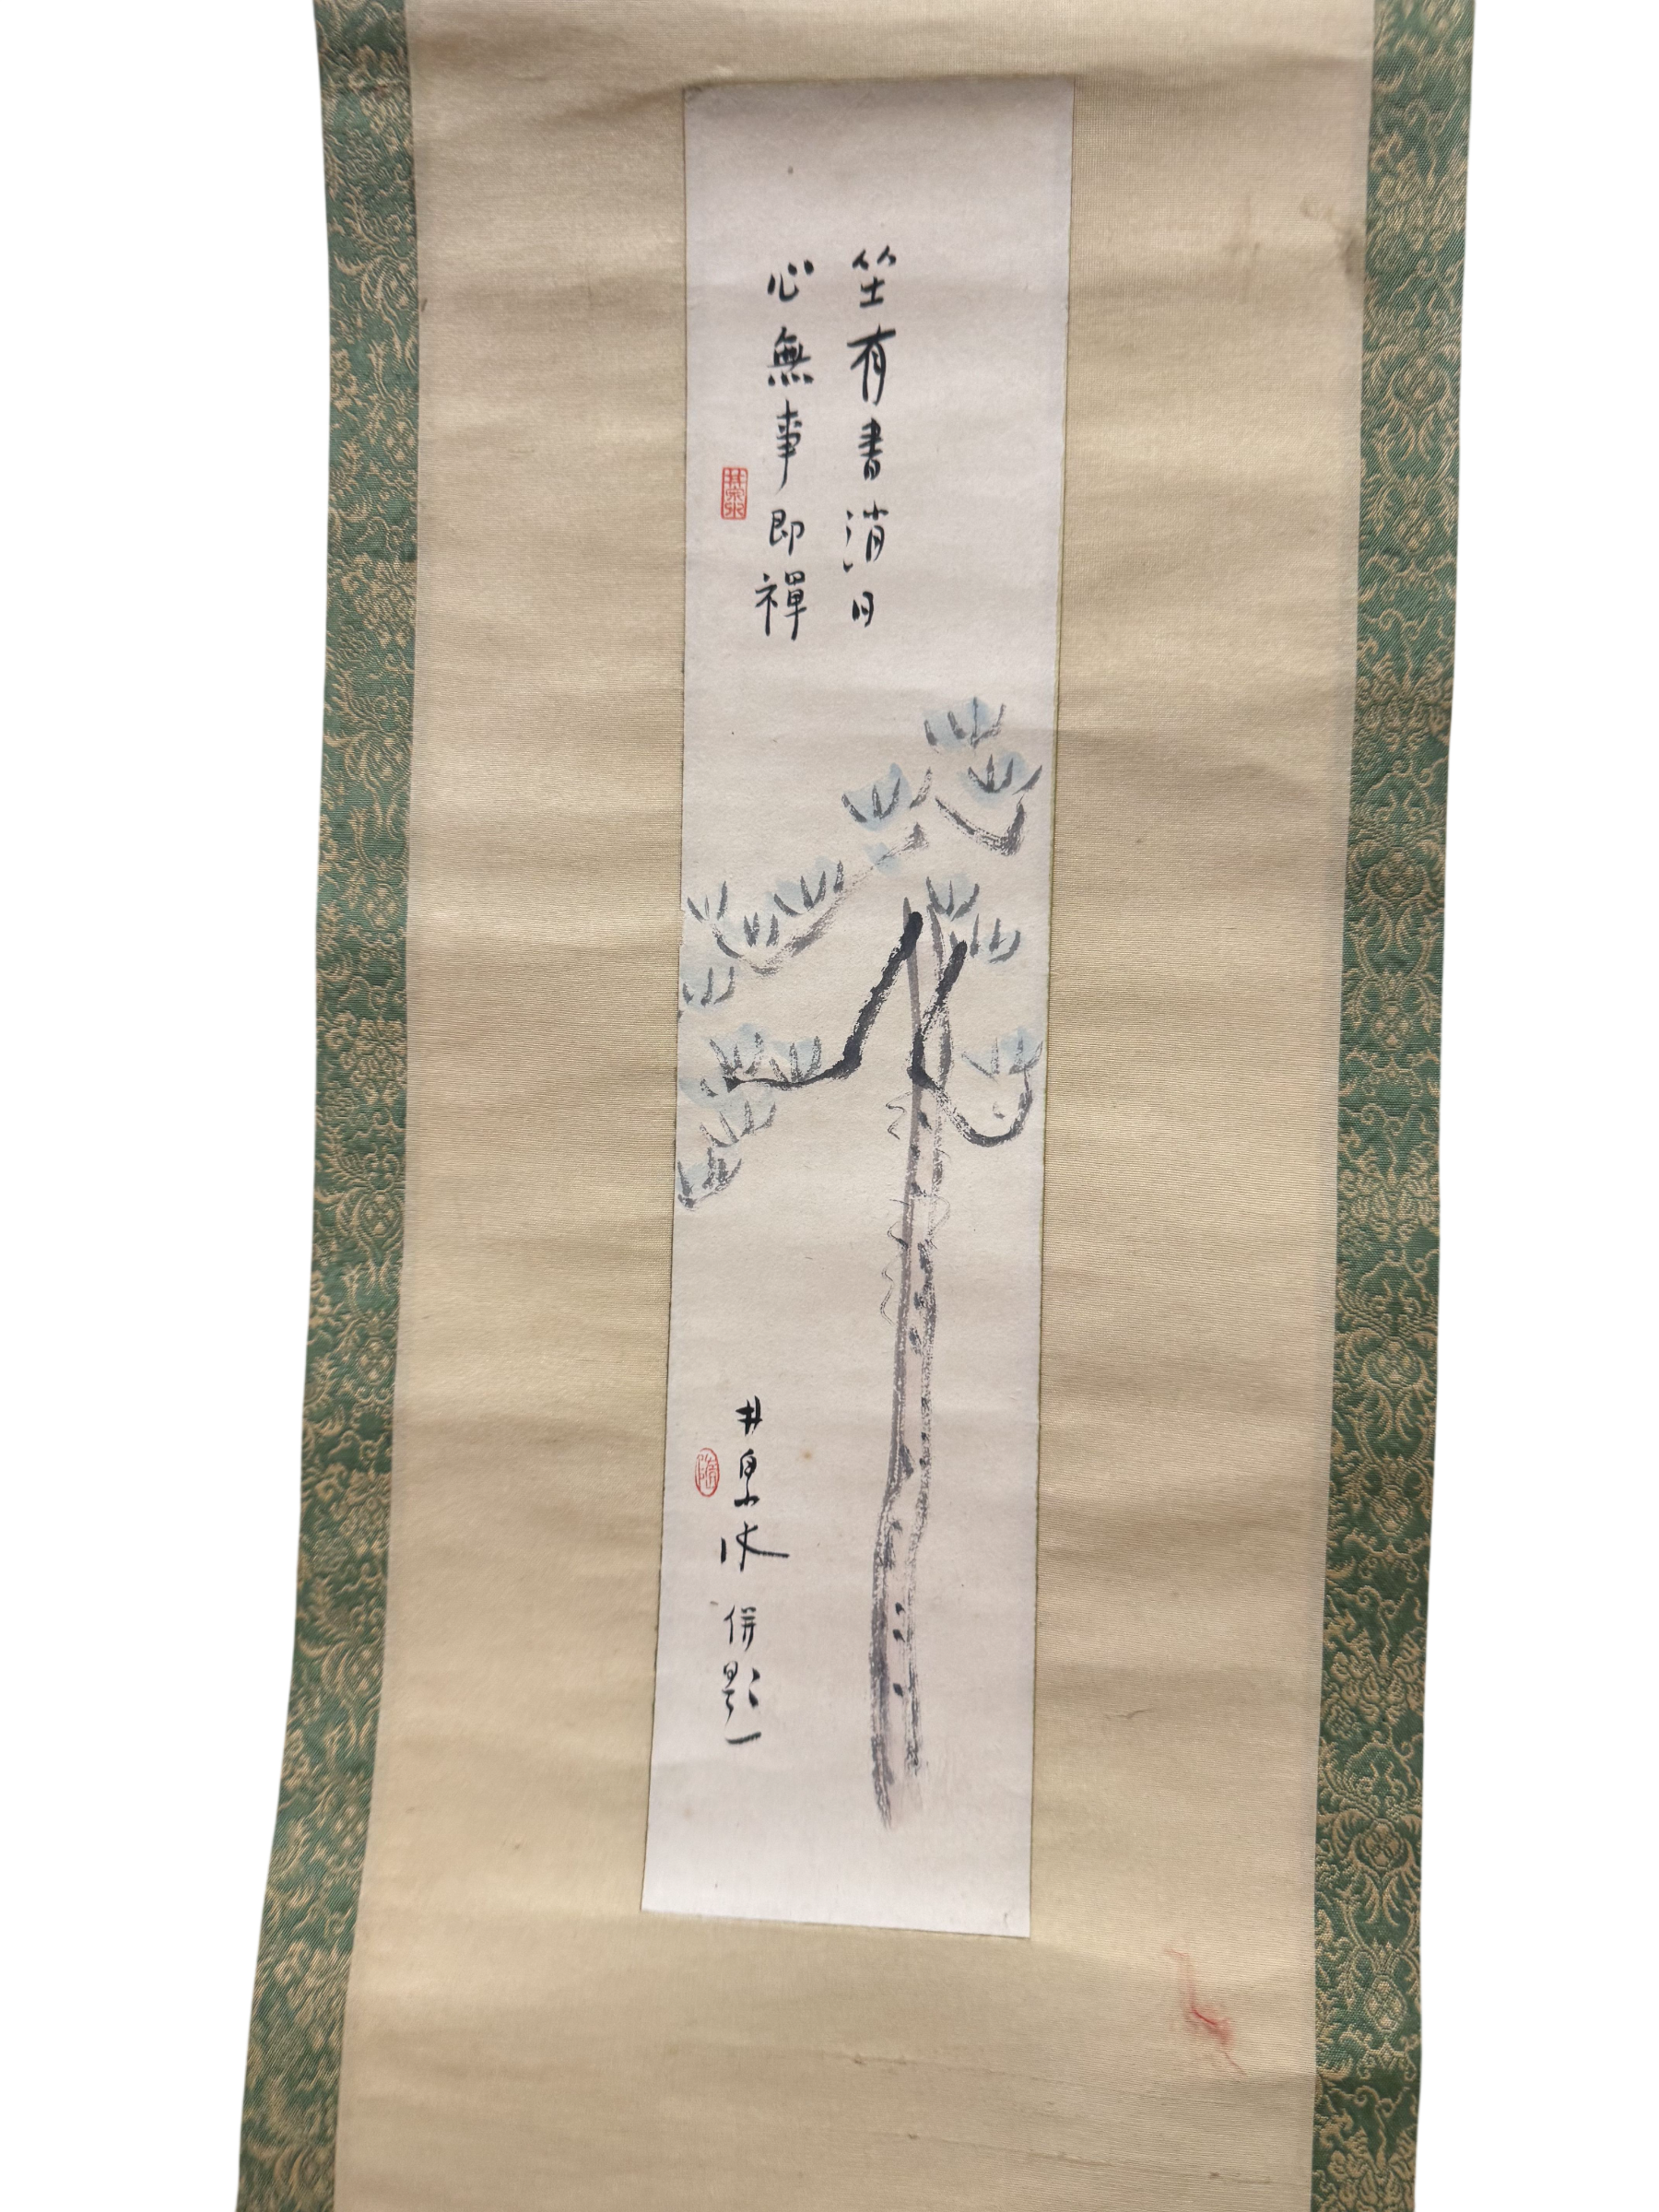 坐有書消日
心無事即禪
井泉水
井泉水併題